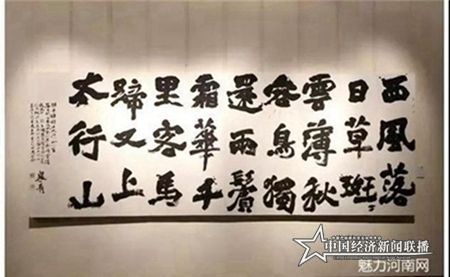 西風落
日草斑々
雲薄秋
容鳥獨
還兩鬢
霜華千
里客馬
蹄又上
太行山
中国经济新闻联播
魅力河南网